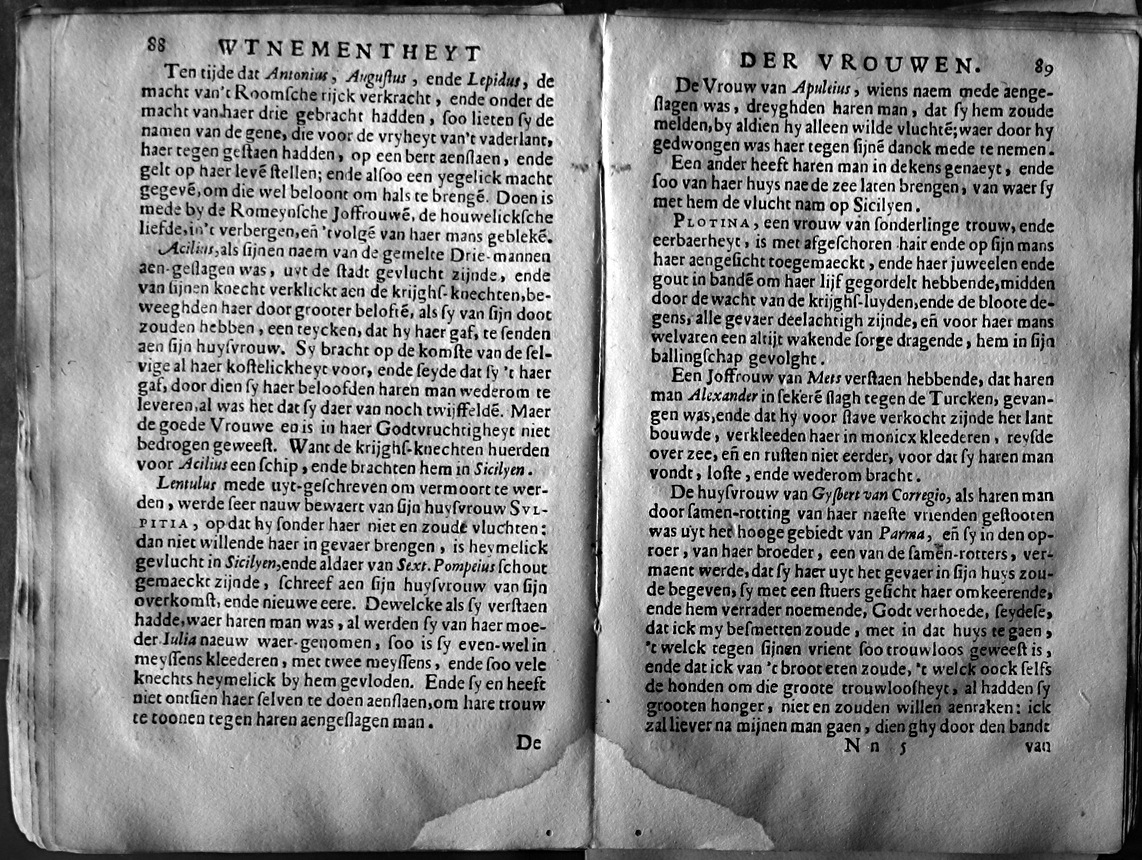 88 WTNEMENTHEYT
Ten tijde dat Antonius, Auguſtus, ende Lepidus, de
macht van't Roomſche rijck verkracht, ende onder de
macht van haer drie gebracht hadden, ſoo lieten ſy de
namen van de gene, die voor de vryheyt van't vaderlant,
haer tegen geſtaen hadden, op een bert aenſlaen, ende
gelt op haer levē ſtellen; ende alſoo een yegelick macht
gegevē, om die wel beloont om hals te brengē. Doen is
mede by de Romeynſche Joffrouwē, de houwelickſche
liefde, in't verbergen, en̄ 'tvolgē van haer mans geblekē.
Acilius, als ſijnen naem van de gemelte Drie-mannen
aen-geſlagen was, uyt de ſtadt gevlucht zijnde, ende
van ſijnen knecht verklickt aen de krijghſ-knechten, be-
weeghden haer door grooter beloftē, als ſy van ſijn doot
zouden hebben, een teycken, dat hy haer gaf, te ſenden
aen ſijn huyſvrouw. Sy bracht op de komſte van de ſel-
vige al haer koſtelickheyt voor, ende ſeyde dat ſy 't haer
gaf, door dien ſy haer beloofden haren man wederom te
leveren, al was het dat ſy daer van noch twijffeldē. Maer
de goede Vrouwe en is in haer Godtvruchtigheyt niet
bedrogen geweeſt. Want de krijghſ-knechten huerden
voor Acilius een ſchip, ende brachten hem in Sicilyen.
Lentulus mede uyt-geſchreven om vermoort te wer-
den, werde ſeer nauw bewaert van ſijn huyſvrouw SVL-
PITIA, op dat hy ſonder haer niet en zoude vluchten:
dan niet willende haer in gevaer brengen, is heymelick
gevlucht in Sicilyen, ende aldaer van Sext. Pompeius ſchout
gemaeckt zijnde, ſchreef aen ſijn huyſvrouw van ſijn
overkomſt, ende nieuwe eere. Dewelcke als ſy verſtaen
hadde, waer haren man was, al werden ſy van haer moe-
der Iulia naeuw waer-genomen, ſoo is ſy even-wel in
meyſſens kleederen, met twee meyſſens, ende ſoo vele
knechts heymelick by hem gevloden. Ende ſy en heeft
niet ontſien haer ſelven te doen aenſlaen, om hare trouw
te toonen tegen haren aengeſlagen man.
De
DER VROUWEN. 89
De Vrouw van Apuleius, wiens naem mede aenge-
ſlagen was, dreyghden haren man, dat ſy hem zoude
melden, by aldien hy alleen wilde vluchtē; waer door hy
gedwongen was haer tegen ſijnē danck mede te nemen.
Een ander heeft haren man in dekens genaeyt, ende
ſoo van haer huys nae de zee laten brengen, van waer ſy
met hem de vlucht nam op Sicilyen.
PLOTINA, een vrouw van ſonderlinge trouw, ende
eerbaerheyt, is met afgeſchoren hair ende op ſijn mans
haer aengeſicht toegemaeckt, ende haer juweelen ende
gout in bandē om haer lijf gegordelt hebbende, midden
door de wacht van de krijghſ-luyden, ende de bloote de-
gens, alle gevaer deelachtigh zijnde, en̄ voor haer mans
welvaren een altijt wakende ſorge dragende, hem in ſijn
ballingſchap gevolght.
Een Joffrouw van Mets verſtaen hebbende, dat haren
man Alexander in ſekerē ſlagh tegen de Turcken, gevan-
gen was, ende dat hy voor ſlave verkocht zijnde het lant
bouwde, verkleeden haer in monicx kleederen, reyſde
over zee, en̄ en ruſten niet eerder, voor dat ſy haren man
vondt, loſte, ende wederom bracht.
De huyſvrouw van Gyſbert van Corregio, als haren man
door ſamen-rotting van haer naeſte vrienden geſtooten
was uyt het hooge gebiedt van Parma, en̄ ſy in den op-
roer, van haer broeder, een van de ſamēn-rotters, ver-
maent werde, dat ſy haer uyt het gevaer in ſijn huys zou-
de begeven, ſy met een ſtuers geſicht haer omkeerende,
ende hem verrader noemende, Godt verhoede, ſeydeſe,
dat ick my beſmetten zoude, met in dat huys te gaen,
't welck tegen ſijnen vrient ſoo trouwloos geweeſt is,
ende dat ick van 't broot eten zoude, 't welck oock ſelfs
de honden om die groote trouwlooſheyt, al hadden ſy
grooten honger, niet en zouden willen aenraken: ick
zal liever na mijnen man gaen, dien ghy door den bandt
N n 5 van